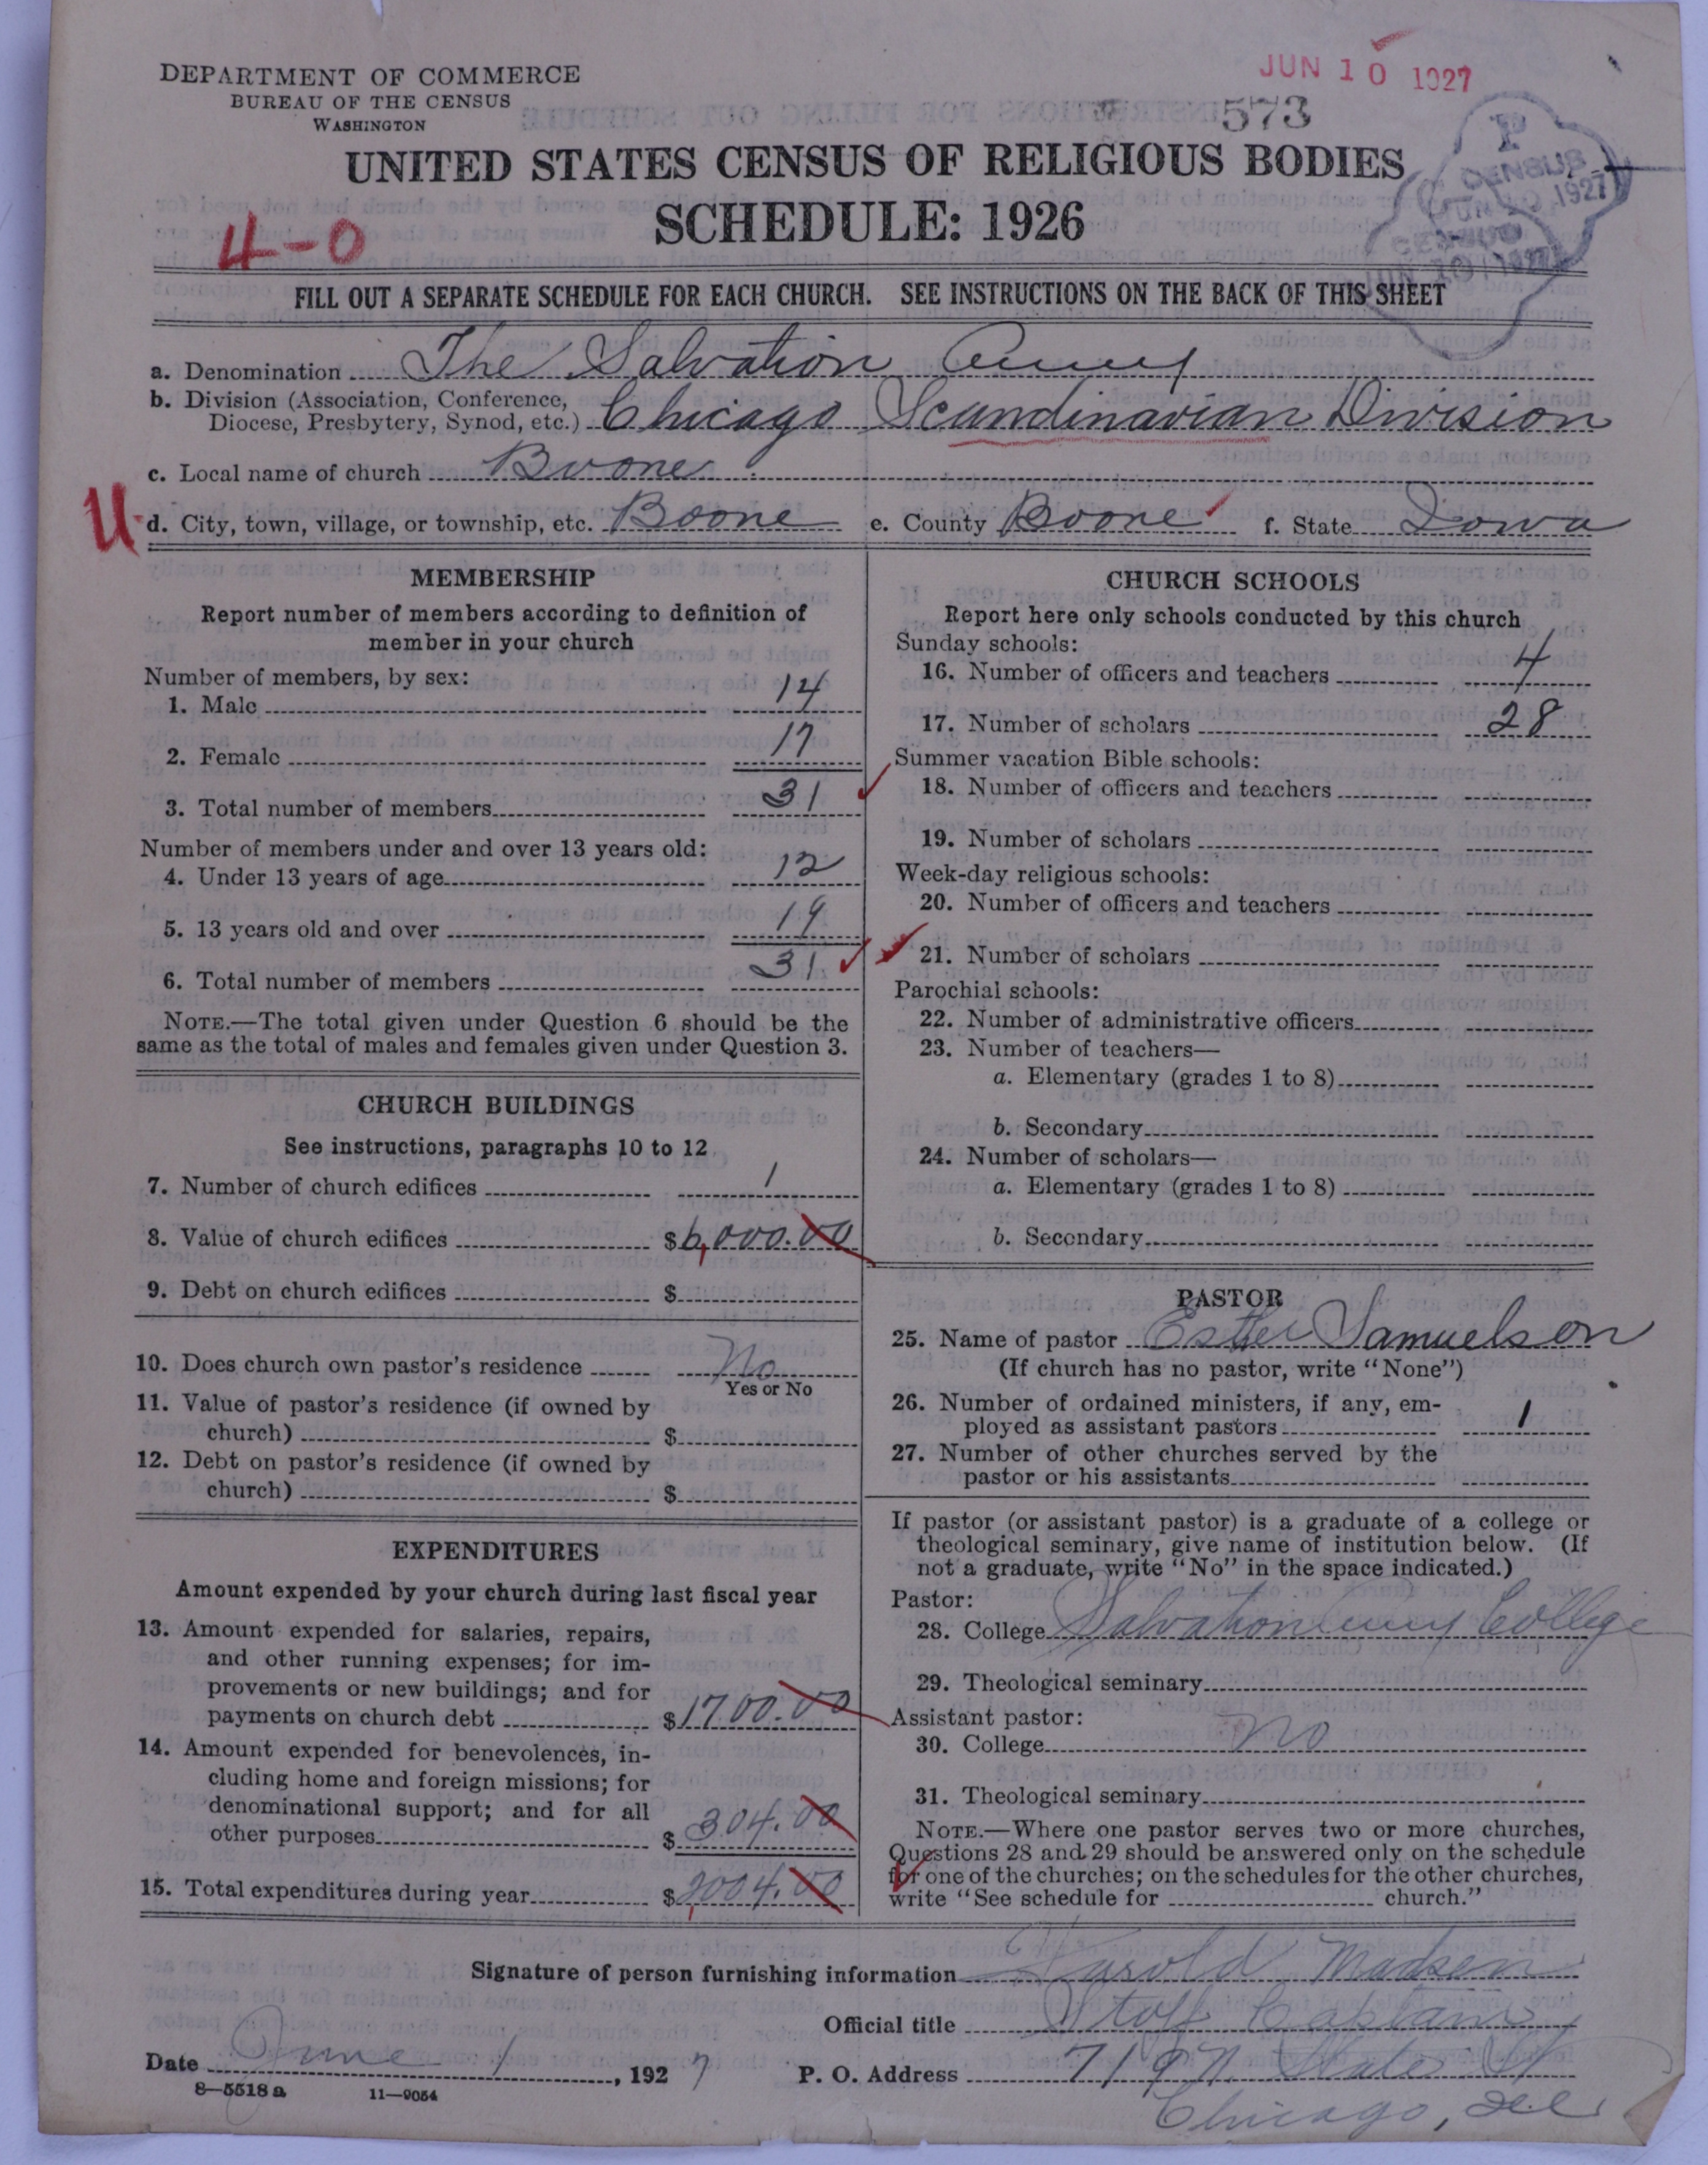 JUN 10 1927
DEPARTMENT OF COMMERCE
BUREAU OF THE CENSUS
WASHINGTON
573
P
CENSUS
JUN 10 1927
CENSUS
JUN 10 1927
UNITED STATES CENSUS OF RELIGIOUS BODIES
SCHEDULE: 1926
4-0
FILL OUT A SEPARATE SCHEDULE FOR EACH CHURCH. SEE INSTRUCTIONS ON THE BACK OF THIS SHEET
a. Denomination The Salvation Army
b. Division (Association, Conference,
Diocese, Presbytery, Synod, etc.) Chicago Scandinavian Division
c. Local name of church Boone
U d. City, town, village, or township, etc. Boone e. County Boone f. State Iowa
MEMBERSHIP
Report number of members according to definition of
member in your church
Number of members, by sex:
1. Male 14
2. Female 17
3. Total number of members 31
Number of members under and over 13 years old:
4. Under 13 years of age 12
5. 13 years old and over 19
6. Total number of members 31
NOTE.—The total given under Question 6 should be the
same as the total of males and females given under Question 3.
CHURCH BUILDINGS
See instructions, paragraphs 10 to 12
7. Number of church edifices 1
8. Value of church edifices $6,000.00
9. Debt on church edifices $
10. Does church own pastor's residence No
Yes or No
11. Value of pastor's residence (if owned by
church) $
12. Debt on pastor's residence (if owned by
church) $
EXPENDITURES
Amount expended by your church during last fiscal year
13. Amount expended for salaries, repairs,
and other running expenses; for im-
provements or new buildings; and for
payments on church debt $1700.00
14. Amount expended for benevolences, in-
cluding home and foreign missions; for
denominational support; and for all
other purposes $304.00
15. Total expenditures during year $2004.00
CHURCH SCHOOLS
Report here only schools conducted by this church
Sunday schools:
16. Number of officers and teachers 4
17. Number of scholars 28
Summer vacation Bible schools:
18. Number of officers and teachers
19. Number of scholars
Week-day religious schools:
20. Number of officers and teachers
21. Number of scholars
Parochial schools:
22. Number of administrative officers
23. Number of teachers—
a. Elementary (grades 1 to 8)
b. Secondary
24. Number of scholars—
a. Elementary (grades 1 to 8)
b. Secondary
PASTOR
25. Name of pastor Esther Samuelson
(If church has no pastor, write "None")
26. Number of ordained ministers, if any, em-
ployed as assistant pastors 1
27. Number of other churches served by the
pastor or his assistants
If pastor (or assistant pastor) is a graduate of a college or
theological seminary, give name of institution below. (If
not a graduate, write "No" in the space indicated.)
Pastor:
28. College Salvation Army College
29. Theological seminary
Assistant pastor:
30. College no
31. Theological seminary
NOTE.—Where one pastor serves two or more churches,
Questions 28 and 29 should be answered only on the schedule
for one of the churches; on the schedules for the other churches,
write "See schedule for church."
Signature of person furnishing information Harold Madsen
Official title Staff Captain
Date June 1, 1927 P. O. Address 719 N. State St
Chicago, Ill
8—5518 a 11—9054